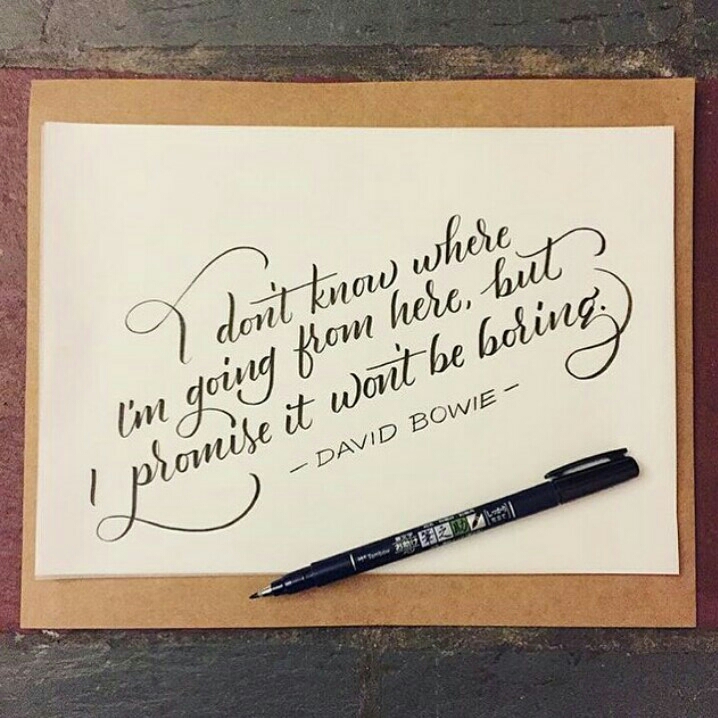 I don't know where
I'm going from here, but
I promise it won't be boring.
- DAVID BOWIE -
Tombow
筆之助
しっかり